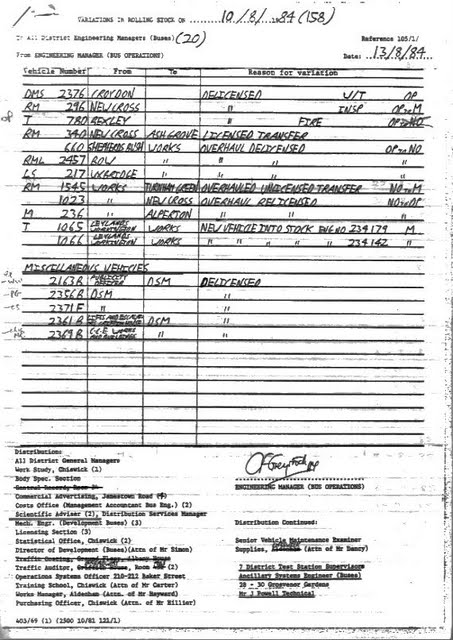 VARIATIONS IN ROLLING STOCK ON 10/8/84 (158)
To All District Engineering Managers (Buses) (20)
Reference 105/1/
From ENGINEERING MANAGER (BUS OPERATIONS)
Date: 13/8/84
Vehicle Number From To Reason for variation
DMS 2376 CROYDON DELICENSED U/T OP
RM 296 NEW CROSS " INSP OP to M
T 780 BEXLEY " FIRE
RM 340 NEW CROSS ASH GROVE LICENSED TRANSFER
660 SHEPHERDS BUSH WORKS OVERHAUL DELICENSED OP to NO
RML 2457 BOW " " "
LS 217 UXBRIDGE " " "
RM 1545 WORKS TURNHAM GREEN OVERHAULED UNLICENSED TRANSFER NO to M
1023 " NEW CROSS OVERHAUL RELICENSED NO to OP
M 236 " ALPERTON " "
T 1065 LEYLANDS WORKINGTON WORKS NEW VEHICLE INTO STOCK ENG NO 234179 M
1066 LEYLANDS WORKINGTON WORKS " " " " " 234142 "
MISCELLANEOUS VEHICLES
2163B DSM DELICENSED
2356B DSM "
2371F " "
2361B DSM "
2369B C.C.E. WORKS " "
Distribution:
All District General Managers
Work Study, Chiswick (1)
Body Spec. Section
Commercial Advertising, Jamestown Road
Costs Office (Management Accountant Bus Eng.) (2)
Scientific Adviser (2), Distribution Services Manager
Mech. Engr. (Development Buses) (3)
Licensing Section (3)
Statistical Office, Chiswick (2)
Director of Development (Buses)(Attn of Mr Simon)
Traffic Costing, Ground Floor, Albany House
Traffic Auditor, House, Room (2)
Operations Systems Officer 210-212 Baker Street
Training School, Chiswick (Attn of Mr Carter)
Works Manager, Aldenham (Attn of Mr Hayward)
Purchasing Officer, Chiswick (Attn of Mr Hillier)
ENGINEERING MANAGER (BUS OPERATIONS)
Distribution Continued:
Senior Vehicle Maintenance Examiner
Supplies, (Attn of Mr Dancy)
7 District Test Station Supervisors
Ancillary Systems Engineer (Buses)
28 - 30 Grosvenor Gardens
Mr J Powell Technical
403/69 (1) (2500 10/81 121/1)